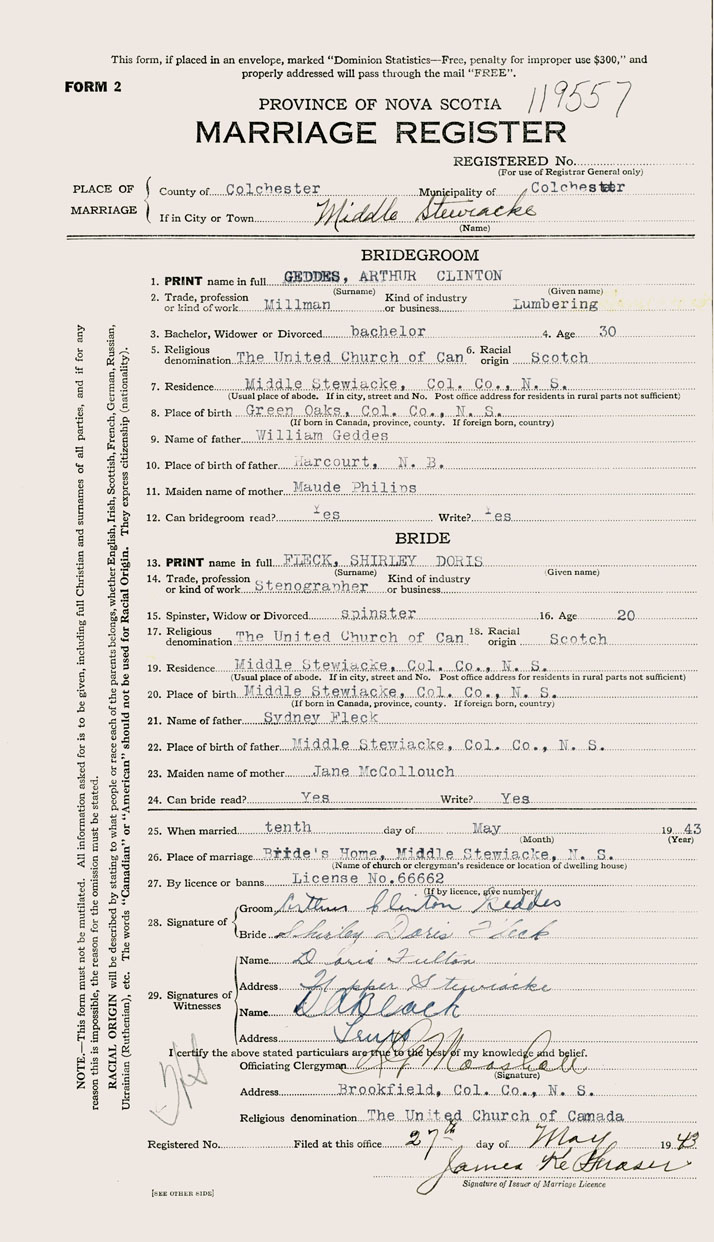 This form, if placed in an envelope, marked "Dominion Statistics—Free, penalty for improper use $300," and
properly addressed will pass through the mail "FREE".
FORM 2
119557
PROVINCE OF NOVA SCOTIA
MARRIAGE REGISTER
REGISTERED No.
(For use of Registrar General only)
PLACE OF MARRIAGE
County of Colchester Municipality of Colchester
If in City or Town Middle Stewiacke
(Name)
BRIDEGROOM
1. PRINT name in full GEDDES, ARTHUR CLINTON
(Surname) (Given name)
2. Trade, profession or kind of work Millman Kind of industry or business Lumbering
3. Bachelor, Widower or Divorced bachelor 4. Age 30
5. Religious denomination The United Church of Can 6. Racial origin Scotch
7. Residence Middle Stewiacke, Col. Co., N. S.
(Usual place of abode. If in city, street and No. Post office address for residents in rural parts not sufficient)
8. Place of birth Green Oaks, Col. Co., N. S.
(If born in Canada, province, county. If foreign born, country)
9. Name of father William Geddes
10. Place of birth of father Harcourt, N. B.
11. Maiden name of mother Maude Philips
12. Can bridegroom read? Yes Write? Yes
BRIDE
13. PRINT name in full FLECK, SHIRLEY DORIS
(Surname) (Given name)
14. Trade, profession or kind of work Stenographer Kind of industry or business
15. Spinster, Widow or Divorced spinster 16. Age 20
17. Religious denomination The United Church of Can 18. Racial origin Scotch
19. Residence Middle Stewiacke, Col. Co., N. S.
(Usual place of abode. If in city, street and No. Post office address for residents in rural parts not sufficient)
20. Place of birth Middle Stewiacke, Col. Co., N. S.
(If born in Canada, province, county. If foreign born, country)
21. Name of father Sydney Fleck
22. Place of birth of father Middle Stewiacke, Col. Co., N. S.
23. Maiden name of mother Jane McCollouch
24. Can bride read? Yes Write? Yes
25. When married tenth day of May 19 43
(Month) (Year)
26. Place of marriage Bride's Home, Middle Stewiacke, N. S.
(Name of church or clergyman's residence or location of dwelling house)
27. By licence or banns License No.66662
(If by licence, give number)
28. Signature of
Groom Arthur Clinton Geddes
Bride Shirley Doris Fleck
29. Signatures of Witnesses
Name Doris Fulton
Address Upper Stewiacke
Name Black
Address Truro
I certify the above stated particulars are true to the best of my knowledge and belief.
Officiating Clergyman
(Signature)
Address Brookfield, Col. Co., N. S.
Religious denomination The United Church of Canada
Registered No. Filed at this office 27th day of May 19 43
James Fraser
Signature of Issuer of Marriage Licence
[SEE OTHER SIDE]
NOTE.—This form must not be mutilated. All information asked for is to be given, including full Christian and surnames of all parties, and if for any
reason this is impossible, the reason for the omission must be stated.
RACIAL ORIGIN will be described by stating to what people or race each of the parents belongs, whether English, Irish, Scottish, French, German, Russian,
Ukrainian (Ruthenian), etc. The words "Canadian" or "American" should not be used for Racial Origin. They express citizenship (nationality).